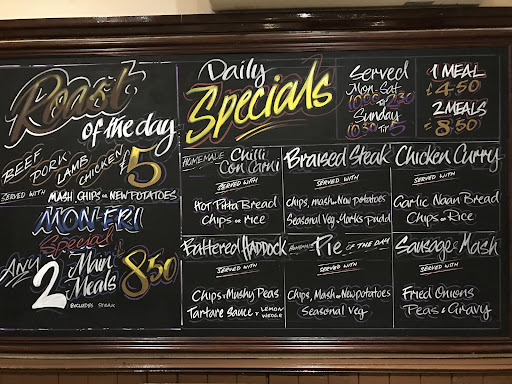 Roast
of the day
BEEF PORK LAMB CHICKEN £5
SERVED WITH MASH CHIPS OR NEW POTATOES
MON-FRI
Special
ANY 2 Main Meals £8.50
EXCLUDES STEAK
Daily
Specials
Served
Mon-Sat
Sunday
10.30 TILL 5
1 MEAL
£4.50
2 MEALS
£8.50
HOMEMADE Chilli
Con Carni
SERVED WITH
Hot Pitta Bread
Chips or rice
Braised Steak
SERVED WITH
Chips, mash or New potatoes
Seasonal Veg. Yorks Pudd
Chicken Curry
SERVED WITH
Garlic Naan Bread
Chips or Rice
Battered Haddock
SERVED WITH
Chips & Mushy Peas
Tartare Sauce & LEMON WEDGE
HOMEMADE Pie OF THE DAY
SERVED WITH
Chips, Mash or New potatoes
Seasonal Veg
Sausage & Mash
SERVED WITH
Fried Onions
Peas & Gravy